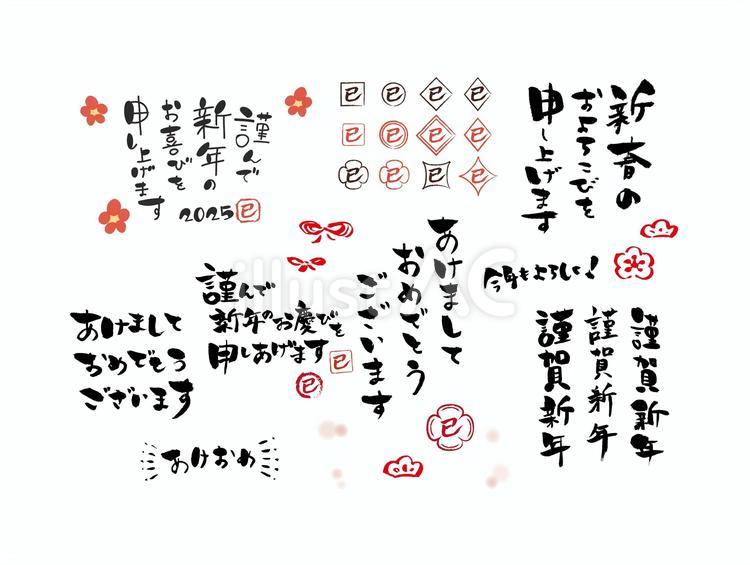 謹んで
新年の
お喜びを
申し上げます
2025 巳
巳 巳 巳 巳
巳 巳 巳 巳
巳 巳 巳 巳
新春の
およろこびを
申し上げます
あけまして
おめでとう
ございます
今年もよろしく!
謹んで
新年のお慶びを
申しあげます
巳
巳
あけまして
おめでとう
ございます
謹賀新年
謹賀新年
謹賀新年
巳
あけおめ
illustAC